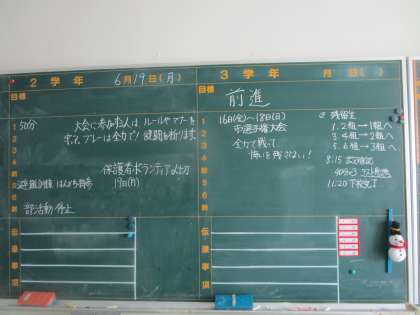 2学年
6月19日(月)
目標
1
50分
大会に参加する人は ルールやマナーを
2
守って、プレーは全力で! 健闘を祈ります。
3
4
保護者ボランティア
5
19日(月)
6
部活動 停止
朝
伝達事項
3学年
月 日( )
目標
前進
1
16日(金)〜18日(日)
2
市選手権大会
3
全力で戦って、
4
悔いを残さない!
5
6
朝
伝達事項
残留生
1.2組→1組へ
3.4組→2組へ
5.6組→3組へ
8:15
11:20 下校完了